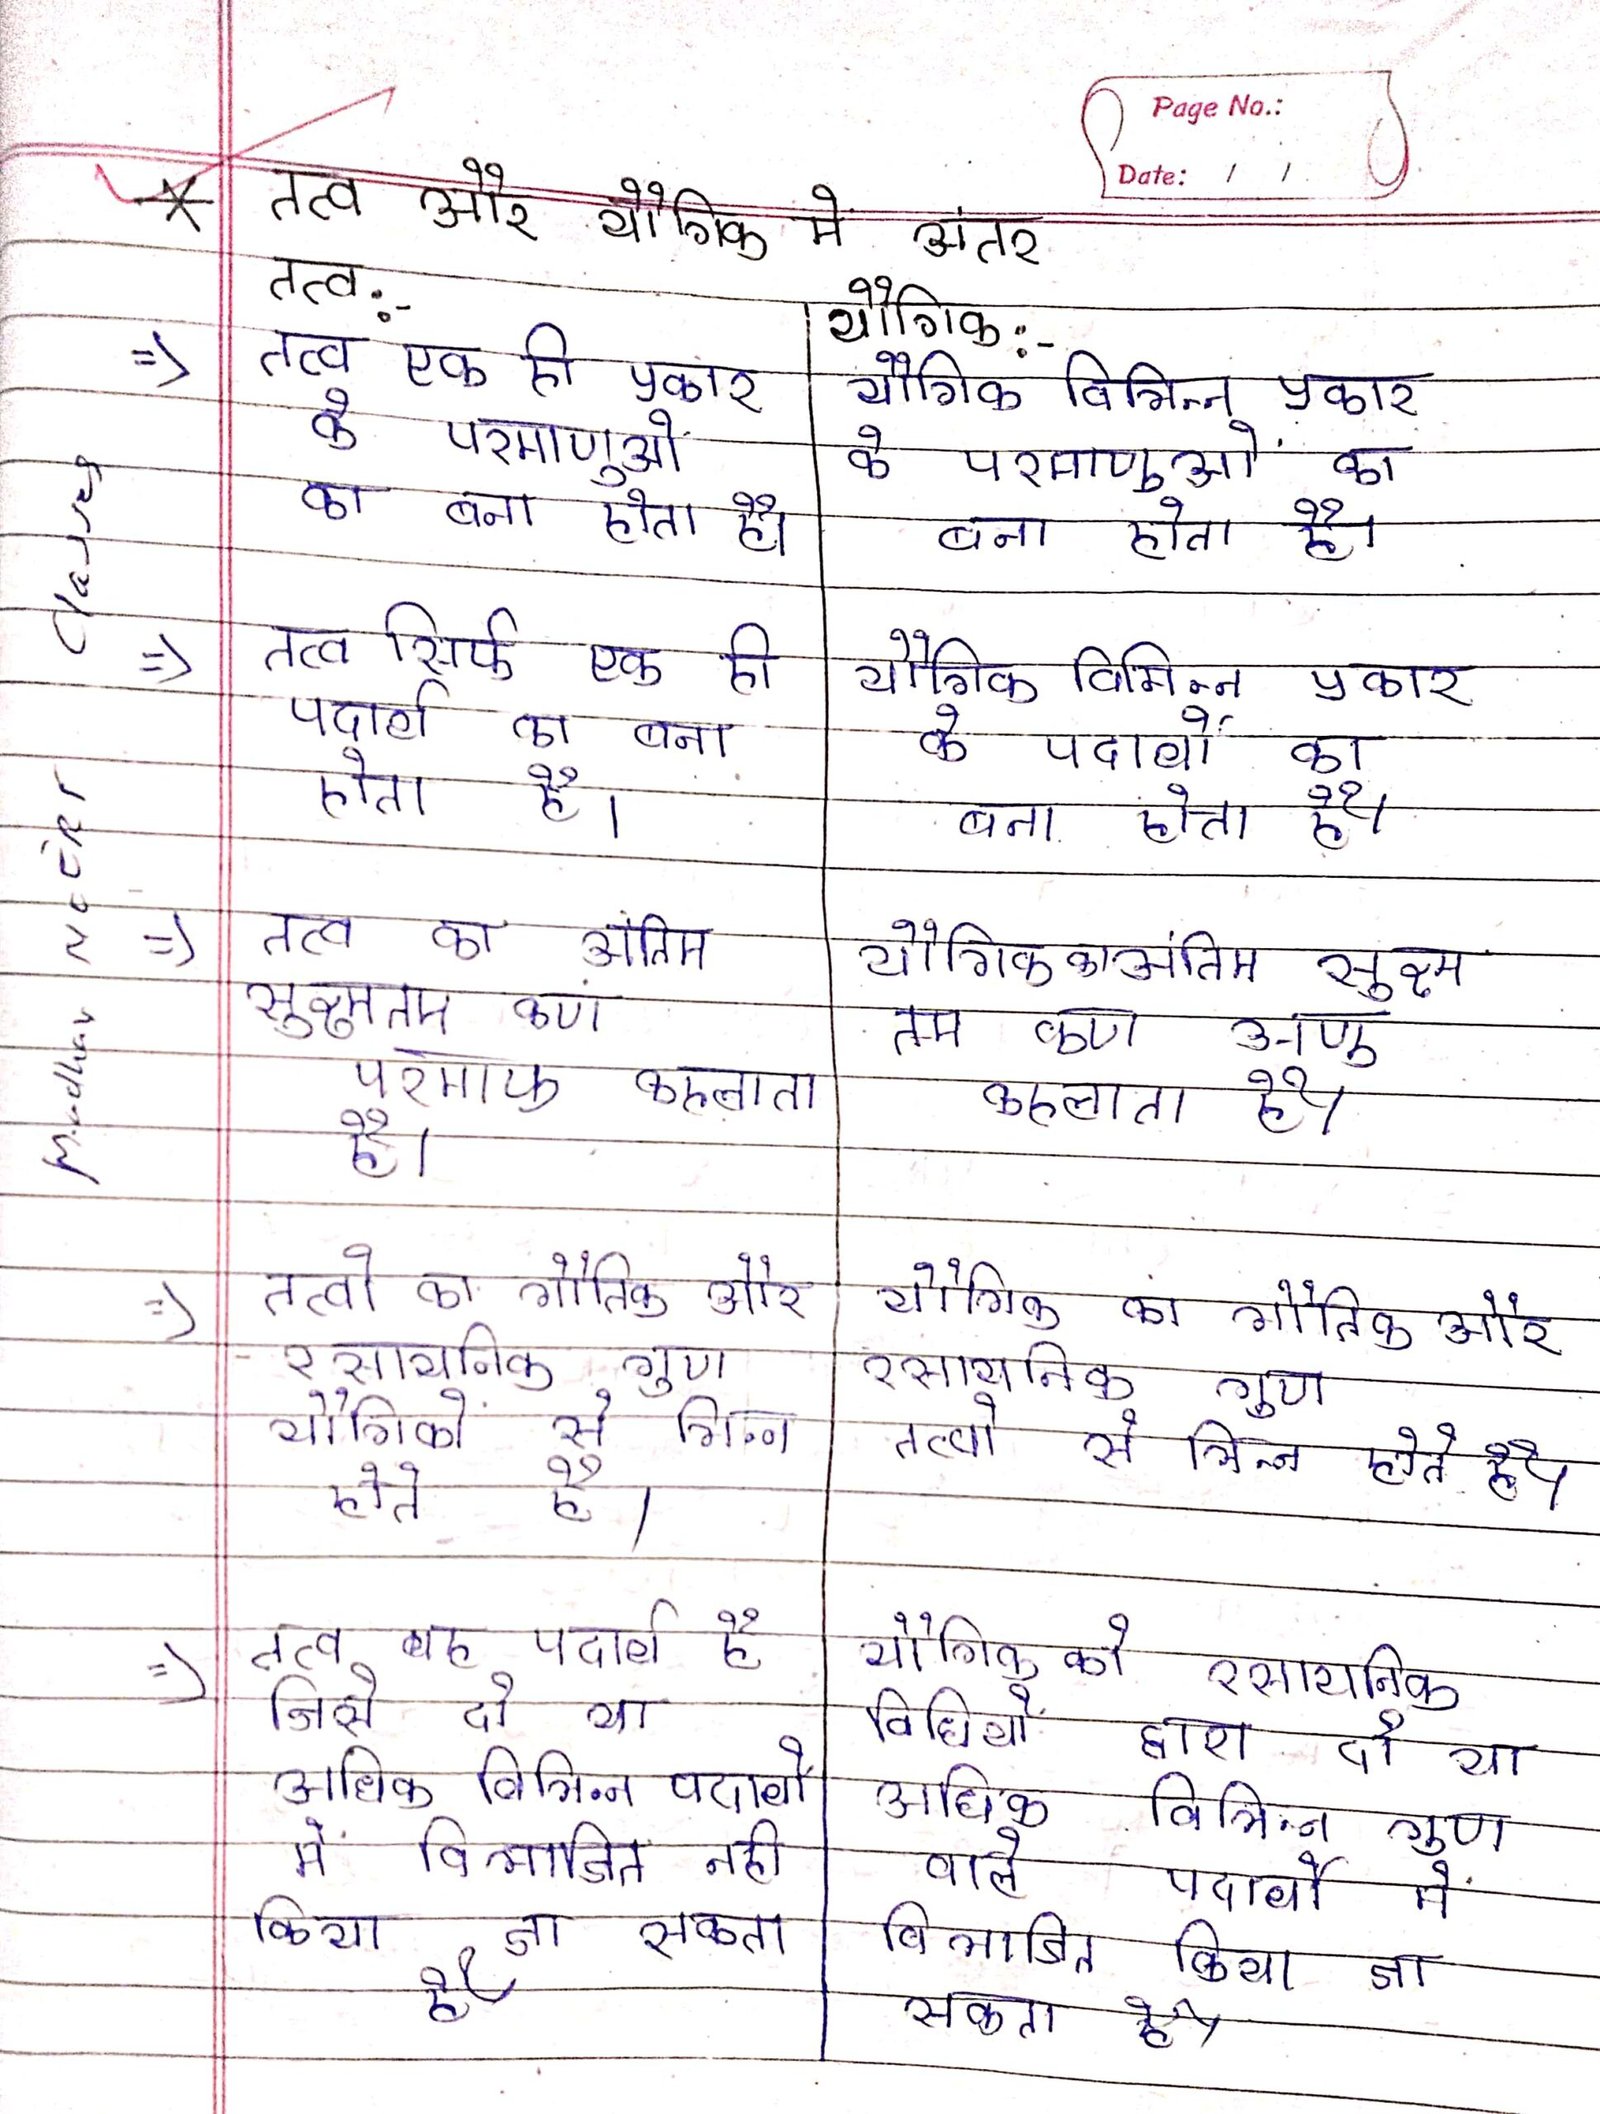 Page No.:
Date: / /
* तत्व और यौगिक में अंतर
तत्व:-
=> तत्व एक ही प्रकार
के परमाणुओं
का बना होता है।
=> तत्व सिर्फ एक ही
पदार्थ का बना
होता है।
=> तत्व का अंतिम
सुक्ष्मतम कण
परमाणु कहलाता
है।
=> तत्वो का भौतिक और
रसायनिक गुण
यौगिकों से भिन्न
होते है।
=> तत्व वह पदार्थ है
जिसे दो या
अधिक विभिन्न पदार्थो
में विभाजित नही
किया जा सकता
है
यौगिक:-
यौगिक विभिन्न प्रकार
के परमाणुओं का
बना होता है।
यौगिक विभिन्न प्रकार
के पदार्थों का
बना होता है।
यौगिक का अंतिम सुक्ष्म
तम कण अणु
कहलाता है।
यौगिक का भौतिक और
रसायनिक गुण
तत्वो से भिन्न होते है।
यौगिक को रसायनिक
विधियों द्वारा दो या
अधिक विभिन्न गुण
वाले पदार्थों में
विभाजित किया जा
सकता है।
Madhav NCERT Classes